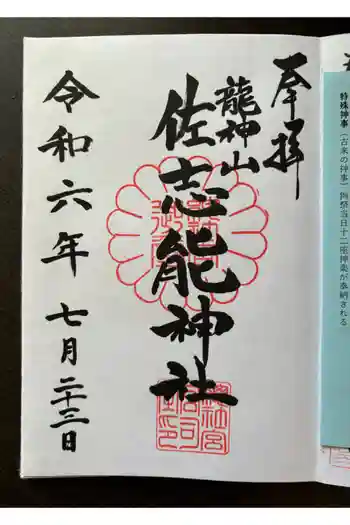 特殊神事(古来の神事)例祭当日十二座神楽が奉納される
奉拝
龍神山
佐志能神社
令和六年七月二十三日